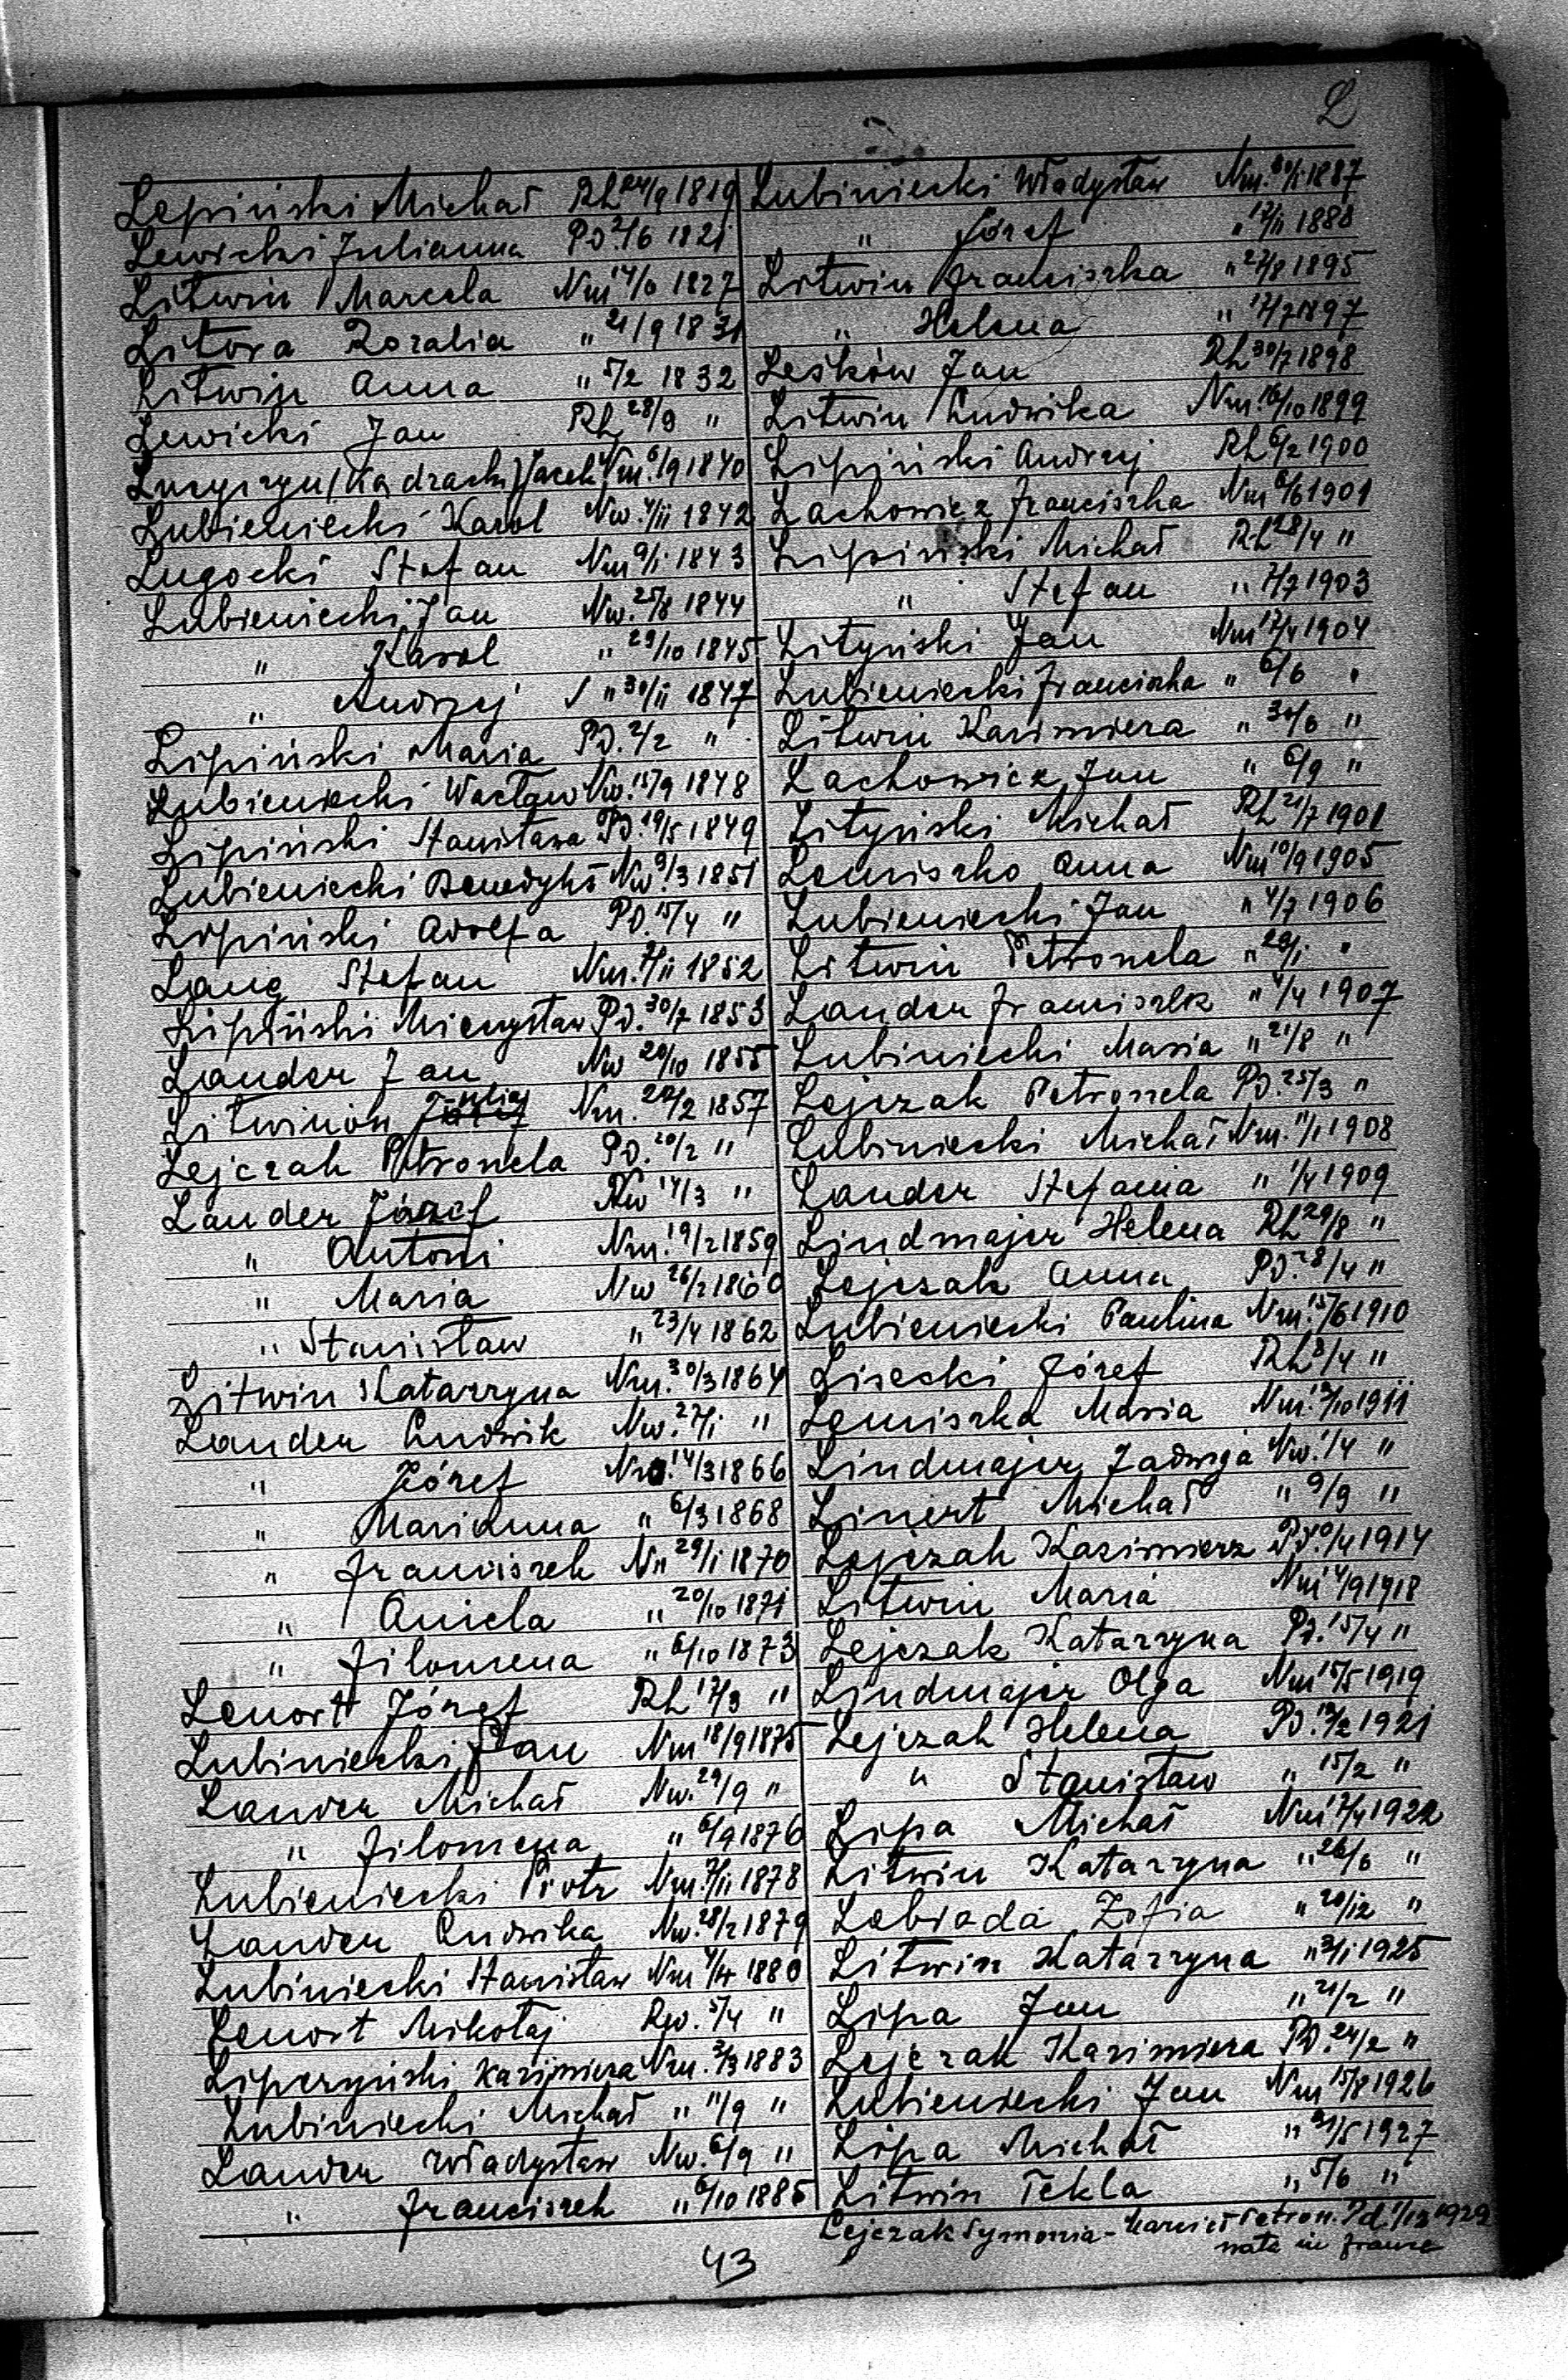 L
Lepiński Michał Rh 24/9 1819
Lewicki Julianna Pd 2/6 1821
Litwin Marcela Nm 14/8 1827
Litora Rozalia " 21/9 1831
Litwin Anna " 5/2 1832
Lewicki Jan Rh 28/9 "
Jacek Nm 6/9 1840
Lubieniecki Karol Nw. 4/11 1842
Lugocki Stefan Nm 9/1 1843
Lubieniecki Jan Nw. 25/8 1844
" Karol " 29/10 1845
" Andrzej " 30/11 1847
Lipiński Maria Pd. 2/2 "
Lubieniecki Wacław Nw. 15/9 1848
Lipiński Stanisława Pd. 19/5 1849
Lubieniecki Benedykt Nw. 9/3 1851
Lipiński Adolfa Pd. 15/4 "
Lang Stefan Nm. 1852
Lipiński Mieczysław Pd. 30/7 1853
Lander Jan Nw 20/10 1855
Litwinion Nm. 22/2 1857
Lejczak Petronela Pd. 20/2 "
Lander Józef Nw 14/3 "
" Antoni Nm. 19/2 1859
" Maria Nw 26/2 1860
" Stanisław " 23/4 1862
Litwin Katarzyna Nm. 30/3 1864
Lander Ludwik Nw. 27/1 "
" Józef 14/3 1866
" Marianna " 6/3 1868
" Franciszek Nw 29/1 1870
" Aniela " 20/10 1871
" Filomena " 6/10 1873
Lenort Józef Rh 17/3 "
Lubiniecki Jan Nm 18/9 1875
Lander Michał Nw. 29/9 "
" Filomena " 6/9 1876
Lubieniecki Piotr Nm. 1878
Lander Ludwika Nw. 28/2 1879
Lubiniecki Stanisław Nm 4/4 1880
Lenort Mikołaj 5/4 "
Lipczyński Kazimiera Nm. 2/3 1883
Lubiniecki Michał " 11/9 "
Lander Władysław Nw. 6/9 "
" Franciszek " 6/10 1885
Lubiniecki Władysław Nm. 1887
" Józef " 17/11 1888
Litwin Franciszka " 27/8 1895
" Helena " 17/7 1897
Leśków Jan Rh 30/7 1898
Litwin Ludwika Nm. 16/10 1899
Lipiński Andrzej Rh 6/2 1900
Lachowicz Franciszka Nm 6/6 1901
Lipiński Michał Rh 28/4 "
" Stefan " 7/7 1903
Lityński Jan Nm 17/4 1904
Lubieniecki Franciszka " 6/6 "
Litwin Kazimiera " 30/6 "
Lachowicz Jan " 6/9 "
Lityński Michał Rh 21/7 1901
Lemiszko Anna Nm 10/9 1905
Lubieniecki Jan " 4/7 1906
Litwin Petronela " 28/1 "
Lander Franciszek " 4/4 1907
Lubiniecki Maria " 21/8 "
Lejczak Petronela Pd. 25/3 "
Lubiniecki Michał Nm. 11/1 1908
Lander Stefania " 1/4 1909
Lindmajer Helena Rh 29/8 "
Lejczak Anna Pd. 28/4 "
Lubieniecki Paulina Nm. 15/6 1910
Lisecki Józef Rh 8/4 "
Lemiszka Maria Nm. 1911
Lindmajer Jadwiga Nw. 1/4 "
Linert Michał " 9/9 "
Lejczak Kazimierz Pd. 1914
Litwin Maria Nm 4/9 1918
Lejczak Katarzyna Pd. 15/4 "
Lindmajer Olga Nm 15/5 1919
Lejczak Helena Pd. 1921
" Stanisław " 15/2 "
Lipa Michał Nm 17/4 1922
Litwin Katarzyna " 26/6 "
Lebioda Zofia " 20/12 "
Litwin Katarzyna " 1925
Lipa Jan " 21/2 "
Lejczak Kazimiera Pd. 24/2 "
Lubieniecki Jan Nm 15/8 1926
Lipa Michał " 31/5 1927
Litwin Tekla " 5/6 "
Lejczak Symonia - Petron. Pd. 1929
nata in France
43